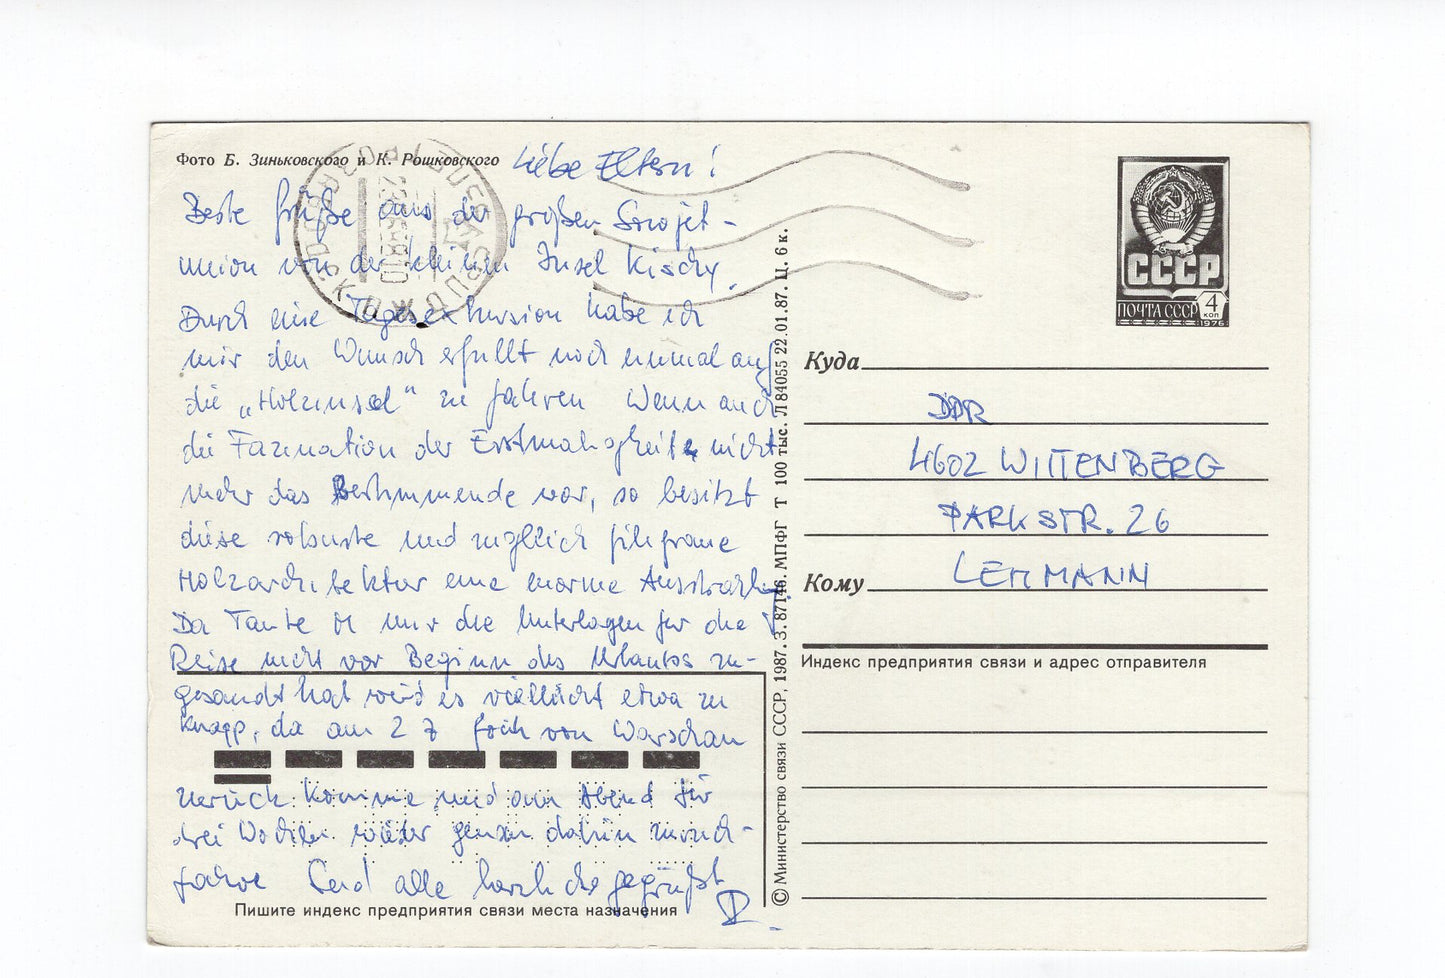 Фото Б. Зиньковского и К. Рошковского
Liebe Eltern!
Beste Grüße aus der großen Sowjet-
union von der kleinen Insel Kischy.
Durch eine Tagesexkursion habe ich
mir den Wunsch erfüllt noch einmal auf
die „Holzinsel" zu fahren Wenn auch
die Faszination der Erstmaligkeit nicht
mehr das Bestimmende war, so besitzt
diese robuste und zugleich filigrane
Holzarchitektur eine enorme Ausstrahlung.
Da Tante mir die Unterlagen für die
Reise nicht vor Beginn des Urlaubs zu-
gesandt hat wird es vielleicht etwa zu
knapp, da am 2 7 früh von Warschau
zurück komme und am Abend für
drei Wochen wieder genau dahin zurück-
fahre Seid alle herzlichst gegrüßt
Пишите индекс предприятия связи места назначения
© Министерство связи СССР, 1987. З. 87146. МПФГ Т 100 тыс. Л 84055 22.01.87. Ц. 6 к.
СССР
ПОЧТА СССР 4 КОП
1976
Куда
DDR
4602 WITTENBERG
PARKSTR. 26
Кому LEHMANN
Индекс предприятия связи и адрес отправителя